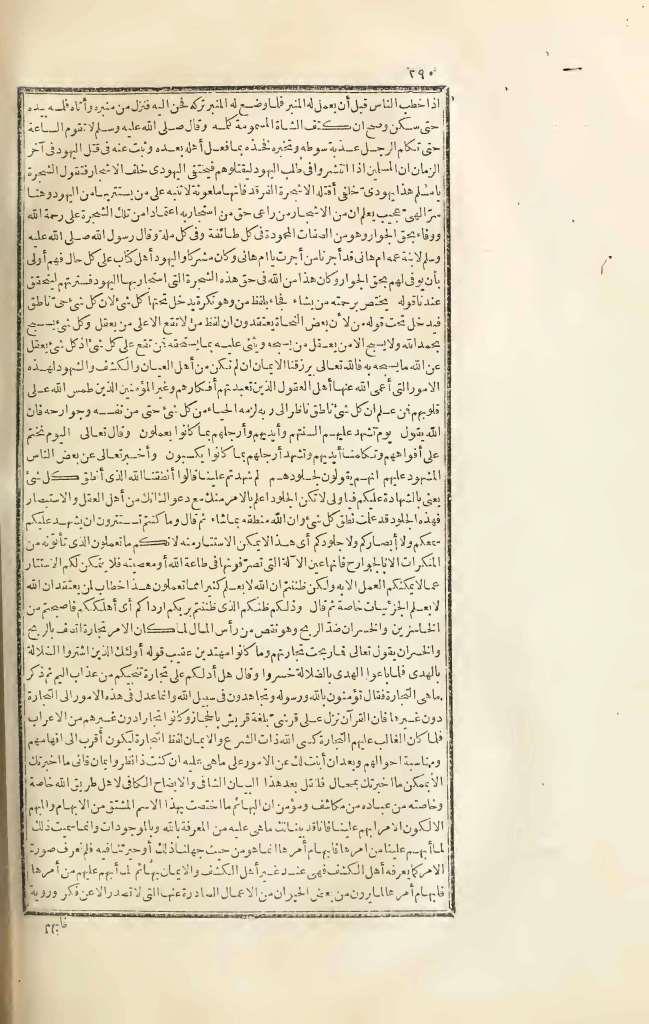 ٢٩٠
اذا خطب الناس قبل أن يعمل له المنبر فلما وضع له المنبر تركه فحن اليه فنزل من منبره وأتاه فلمسه بيده
حتى سكن وصح ان كتف الشاة المسمومة كلمه وقال صلى الله عليه وسلم لا تقوم الساعة
حتى تكلم الرجل عذبة سوطه وتخبره فخذه بما فعل أهله بعده وثبت عنه فى قتل اليهود فى آخر
الزمان ان المسلمين اذا انتشروا فى طلب اليهود ليقتلوهم فيختفى اليهودى خلف الاشجار فتقول الشجرة
يا مسلم هذا يهودى خلفى أقتله الا شجرة الغرقد فانها ملعونة لا تنبه على من يستتر بها من اليهود وهنا
سرّ الهىّ عجيب يعلم ان من الاشجار من راعى حق من استجار به اعتمادا من تلك الشجرة على رحمة الله
ووفاء بحق الجوار وهو من الصفات المحمودة فى كل طائفة وفى كل ملة وقال رسول الله صلى الله عليه
وسلم لابنة عمه ام هانى قد أجرنا من أجرت يا ام هانى وكان مشركا واليهود أهل كتاب على كل حال فهم أولى
بأن يوفى لهم بحق الجوار وكان هذا من الله فى حق هذه الشجرة التى استجار بها اليهود فسترتهم ليتحقق
عندنا قوله يختص برحمته من يشاء فجاء بلفظ من وهو نكرة يدخل تحتها كل شئ لان كل شئ حىّ ناطق
فيدخل تحت قوله من لأن بعض النحاة يعتقدون ان لفظ من لا تقع الا على من يعقل وكل شئ يسبح
بحمد الله ولا يسبح الا من يعقل من يسبحه ويثنى عليه بما يستحقه فمن تقع على كل شئ اذ كل شئ يعقل
عن الله ما يسبحه به فالله تعالى يرزقنا الايمان ان لم نكن من أهل العيان والكشف والشهود لهذه
الامور التى أعمى الله عنها أهل العقول الذين تعبدتهم أفكارهم وغير المؤمنين الذين طمس الله على
قلوبهم فمن علم ان كل شئ ناطق ناظر الى ربه لزمه الحياء من كل شئ حتى من نفسه وجوارحه فان
الله يقول يوم تشهد عليهم السنتهم وأيديهم وأرجلهم بما كانوا يعملون وقال تعالى اليوم نختم
على أفواههم وتكلمنا أيديهم وتشهد أرجلهم بما كانوا يكسبون وأخبر تعالى عن بعض الناس
المشهود عليهم انهم يقولون لجلودهم لم شهدتم علينا قالوا أنطقنا الله الذى أنطق كل شئ
يعنى بالشهادة عليكم فيا ولى لا تكن الجلود اعلم بالامر منك مع دعواك انك من أهل العقل والاستبصار
فهذه الجلود قد علمت نطق كل شئ وان الله منطقه بما شاء ثم قال وما كنتم تستترون ان يشهد عليكم
سمعكم ولا أبصاركم ولا جلودكم أى هذا لا يمكن الاستتار منه لانكم ما تعملون الذى تأتونه من
المنكرات الا بالجوارح فانها عين الآلة التى تصرّفونها فى طاعة الله أو معصيته فلا يتمكن لكم الاستتار
عما لا يمكنكم العمل الا به ولكن ظننتم ان الله لا يعلم كثيرا مما تعملون هذا خطاب لمن يعتقد ان الله
لا يعلم الجزئيات خاصة ثم قال وذلكم ظنكم الذى ظننتم بربكم ارداكم أى أهلككم فاصبحتم من
الخاسرين والخسران ضدّ الربح وهو نقص من رأس المال لما كان الامر تجارة اتصف بالربح
والخسران يقول تعالى فما ربحت تجارتهم وما كانوا مهتدين عقيب قوله أولئك الذين اشتروا الضلالة
بالهدى فلما باعوا الهدى بالضلالة خسروا وقال هل أدلكم على تجارة تنجيكم من عذاب اليم ثم ذكر
ما هى التجارة فقال تؤمنون بالله ورسوله وتجاهدون فى سبيل الله وانما عدل فى هذه الامور الى التجارة
دون غيرها فان القرآن نزل على قرشىّ بلغة قريش بالحجاز وكانوا تجارا دون غيرهم من الاعراب
فلما كان الغالب عليهم التجارة كسى الله ذات الشرع والايمان لفظ التجارة ليكون أقرب الى افهامهم
ومناسبة احوالهم وبعد ان أبنت لك عن الامور على ما هى عليه ان كنت ذا نظر وايمان فانى ما اخبرتك
الا بممكن ما اخبرتك بمحال فلنقل بعد هذا البيان الشافى والايضاح الكافى لاهل طريق الله خاصة
وخاصته من عباده من مكاشف ومؤمن ان البهائم ما اختصت بهذا الاسم المشتق من الابهام والمبهم
الا لكون الامر ابهم علينا فانا قد بينا لك ما هى عليه من المعرفة بالله وبالموجودات وانما سميت ذلك
لما أبهم علينا من امرها فابهام أمرها انما هو من حيث جهلنا ذلك أو حيرتنا فيه فلم نعرف صورة
الامر كما يعرفه أهل الكشف فهى عند غير أهل الكشف والايمان بهائم لما أبهم عليهم من أمرها
فابهام أمرها لما يرون من بعض الحيوان من الاعمال الصادرة عنها التى لا تصدر الا عن فكر وروية